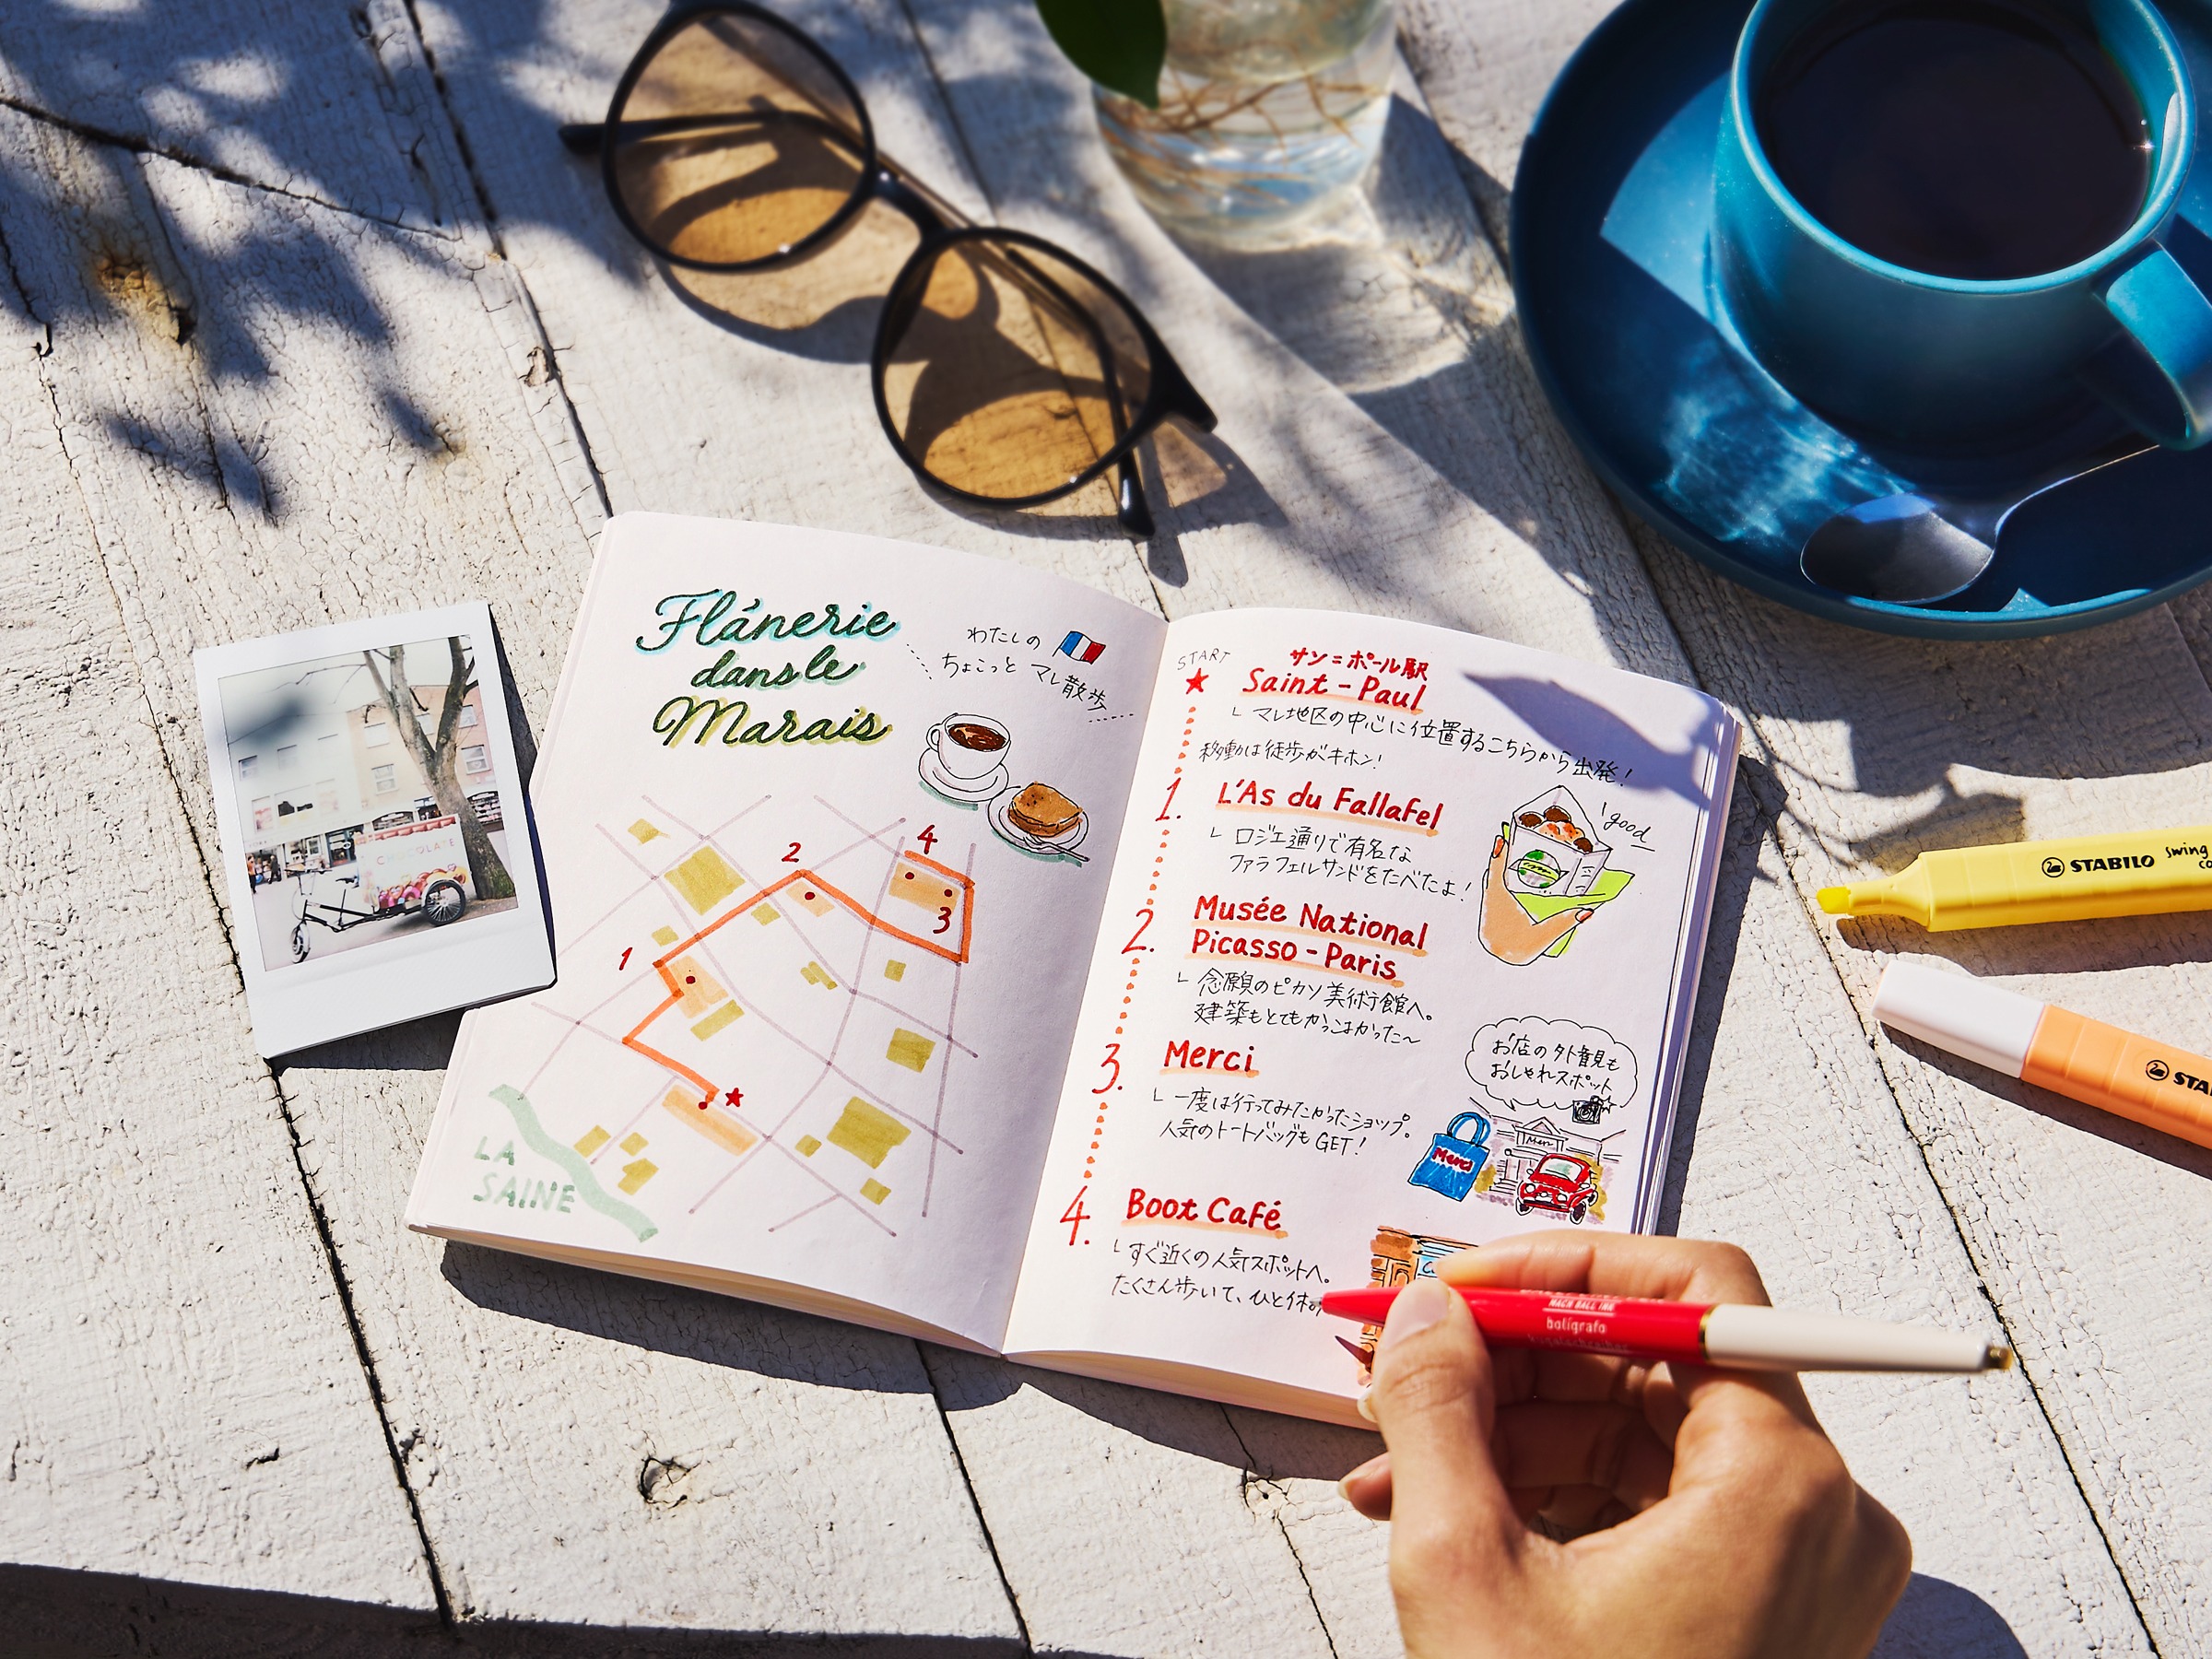 Flânerie
dans le
Marais
わたしの
ちょこっと マレ散歩
1
2
3
4
LA
SAINE
START
サン=ポール駅
Saint-Paul
マレ地区の中心に位置するこちらから出発!
移動は徒歩がキホン!
1. L'As du Fallafel
ロジエ通りで有名な
ファラフェルサンドをたべたよ!
good
2. Musée National
Picasso-Paris
念願のピカソ美術館へ。
建築もとてもかっこよかった〜
3. Merci
一度は行ってみたかったショップ。
人気のトートバッグもGET!
お店の外観も
おしゃれスポット
Merci
Merci
4. Boot Café
すぐ近くの人気スポットへ。
たくさん歩いて、ひと休み
CHOCOLATE
STABILO swing
co
STA
bolígrafo